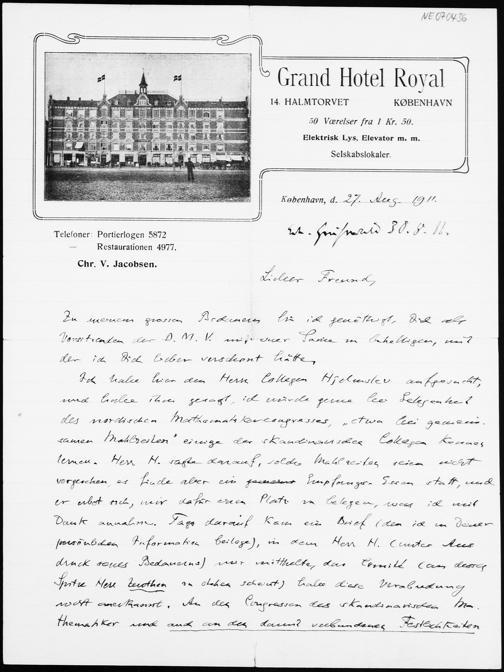 NE070436
Grand Hotel Royal
14. HALMTORVET KØBENHAVN
50 Værelser fra 1 Kr. 50.
Elektrisk Lys, Elevator m. m.
Selskabslokaler.
København, d. 27. Aug. 1911.
30. 8. 11.
Telefoner: Portierlogen 5872
— Restaurationen 4977.
Chr. V. Jacobsen.
Lieber Freund,
Zu meinem grossen Bedauern bin ich genötigt, Dich als
Vorsitzenden der D. M. V. mit einer Sache zu behelligen, mit
der ich Dich lieber verschont hätte.
Ich habe hier den Herrn Collegen Hjelmslev aufgesucht,
und habe ihm gesagt, ich würde gerne bei Gelegenheit
des nordischen Mathematikercongresses, „etwa bei gemein-
samen Mahlzeiten" einige der skandinavischen Collegen kennen
lernen. Herr H. sagte darauf, solche Mahlzeiten seien nicht
vorgesehen, es finde aber ein Empfangs-Essen statt, und
er erbot sich, mir dafür einen Platz zu belegen, was ich mit
Dank annahm. Tags darauf kam ein Brief (den ich zu Deiner
persönlichen Information beilege), in dem Herr H. (unter Aus-
druck seines Bedauerns) mir mitteilte, das Comité (an dessen
Spitze Herr Zeuthen zu stehen scheint) habe diese Verabredung
nicht anerkannt. An den Congressen der skandinavischen Ma-
thematiker und auch an den damit verbundenen Festlichkeiten